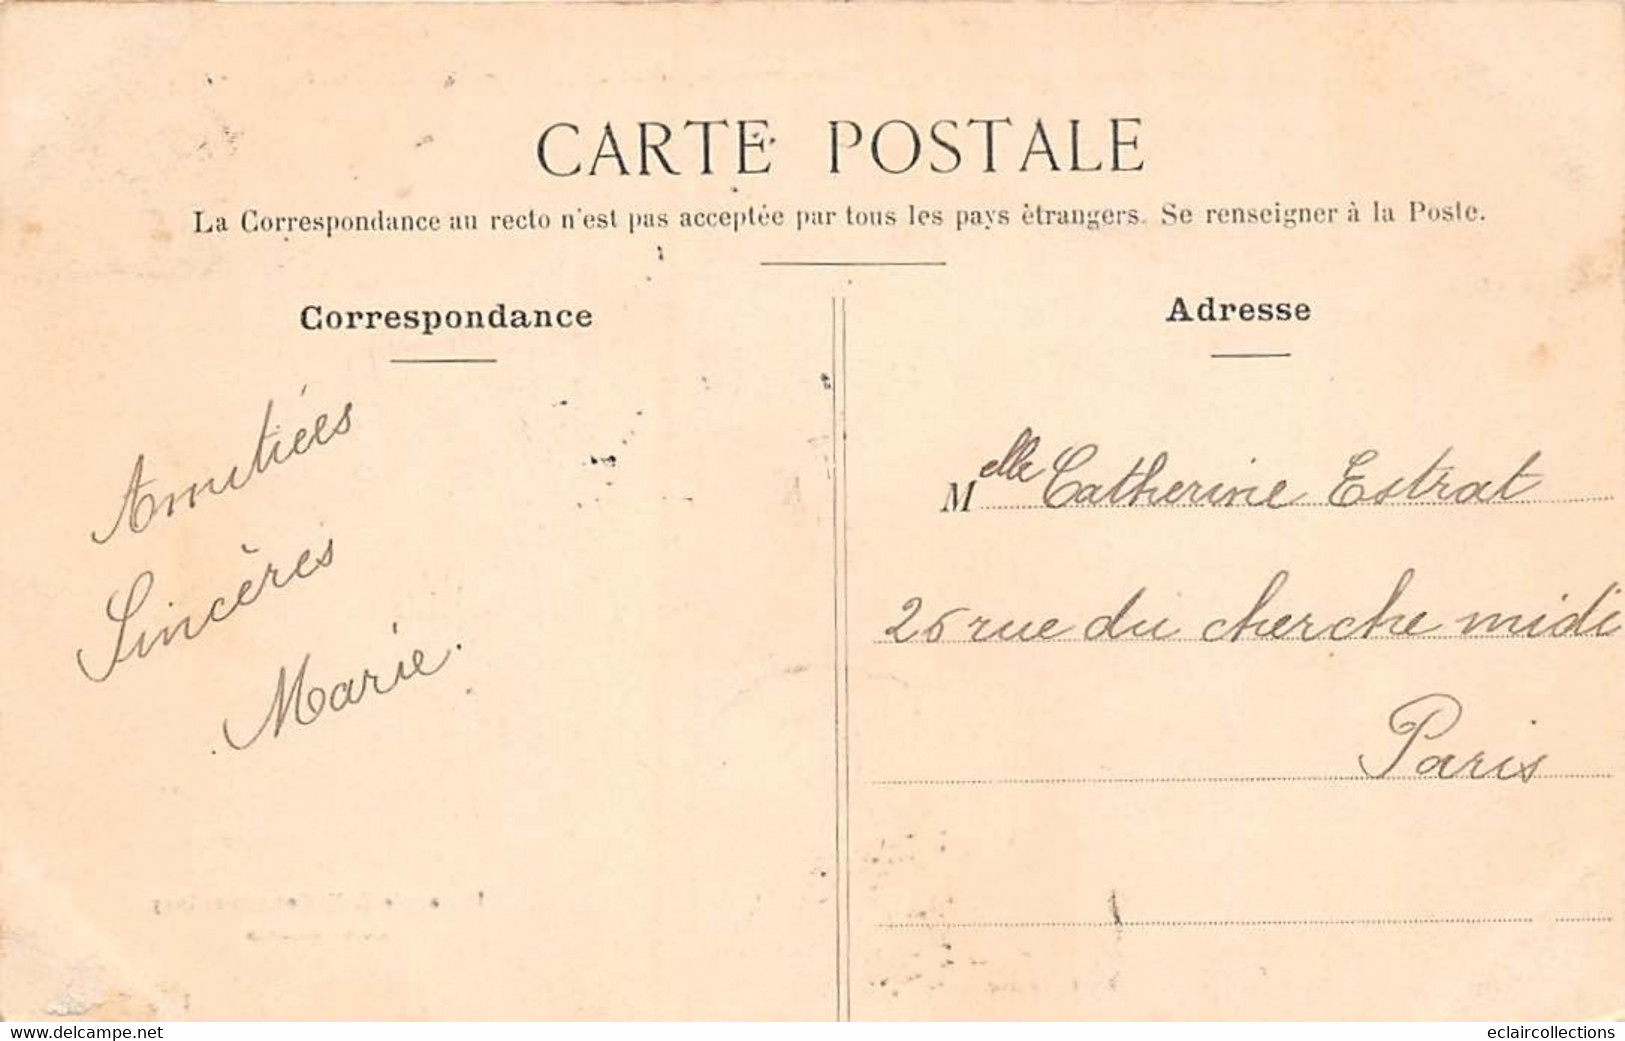 CARTE POSTALE
La Correspondance au recto n'est pas acceptée par tous les pays étrangers. Se renseigner à la Poste.
Correspondance
Amitiées
Sincères
Marie.
Adresse
Melle Catherine Estrat
26 rue du cherche midi
Paris
delcampe.net
eclaircollections